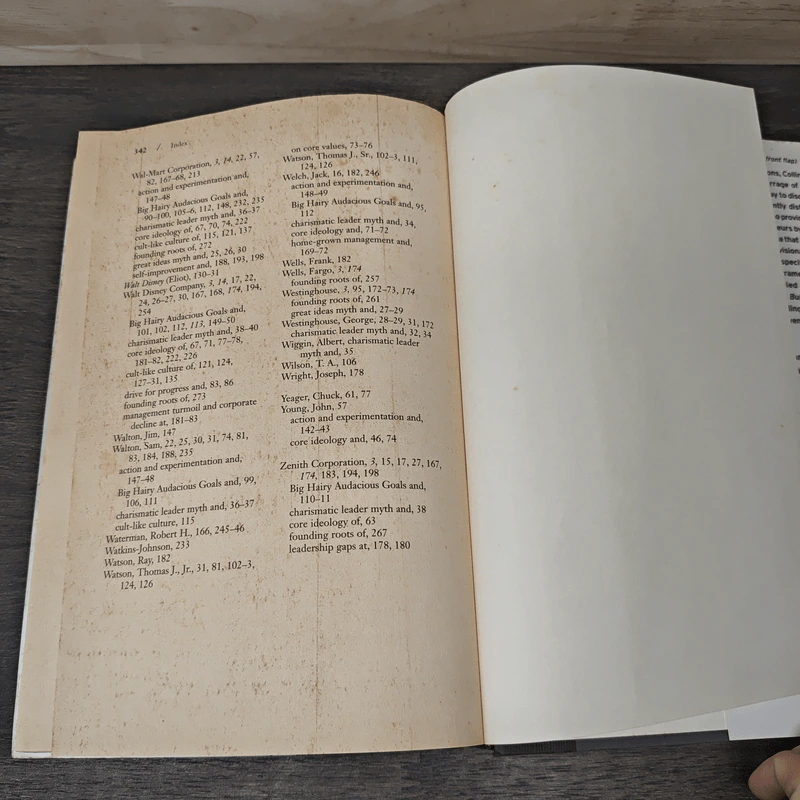 342 / Index
Wal-Mart Corporation, 3, 14, 22, 57,
82, 167–68, 213
action and experimentation and,
147–48
Big Hairy Audacious Goals and,
90–100, 105–6, 112, 148, 232, 235
charismatic leader myth and, 36–37
core ideology of, 67, 70, 74, 222
cult-like culture of, 115, 121, 137
founding roots of, 272
great ideas myth and, 25, 26, 30
self-improvement and, 188, 193, 198
Walt Disney (Eliot), 130–31
Walt Disney Company, 3, 14, 17, 22,
24, 26–27, 30, 167, 168, 174, 194,
254
Big Hairy Audacious Goals and,
101, 102, 112, 113, 149–50
charismatic leader myth and, 38–40
core ideology of, 67, 71, 77–78,
181–82, 222, 226
cult-like culture of, 121, 124,
127–31, 135
drive for progress and, 83, 86
founding roots of, 273
management turmoil and corporate
decline at, 181–83
Walton, Jim, 147
Walton, Sam, 22, 25, 30, 31, 74, 81,
83, 184, 188, 235
action and experimentation and,
147–48
Big Hairy Audacious Goals and, 99,
106, 111
charismatic leader myth and, 36–37
cult-like culture, 115
Waterman, Robert H., 166, 245–46
Watkins-Johnson, 233
Watson, Ray, 182
Watson, Thomas J., Jr., 31, 81, 102–3,
124, 126
on core values, 73–76
Watson, Thomas J., Sr., 102–3, 111,
124, 126
Welch, Jack, 16, 182, 246
action and experimentation and,
148–49
Big Hairy Audacious Goals and, 95,
112
charismatic leader myth and, 34,
core ideology and, 71–72
home-grown management and,
169–72
Wells, Frank, 182
Wells, Fargo, 3, 174
founding roots of, 257
Westinghouse, 3, 95, 172–73, 174
founding roots of, 261
great ideas myth and, 27–29
Westinghouse, George, 28–29, 31, 172
charismatic leader myth and, 32, 34
Wiggin, Albert, charismatic leader
myth and, 35
Wilson, T. A., 106
Wright, Joseph, 178
Yeager, Chuck, 61, 77
Young, John, 57
action and experimentation and,
142–43
core ideology and, 46, 74
Zenith Corporation, 3, 15, 17, 27, 167,
174, 183, 194, 198
Big Hairy Audacious Goals and,
110–11
charismatic leader myth and, 38
core ideology of, 63
founding roots of, 267
leadership gaps at, 178, 180
front flap)